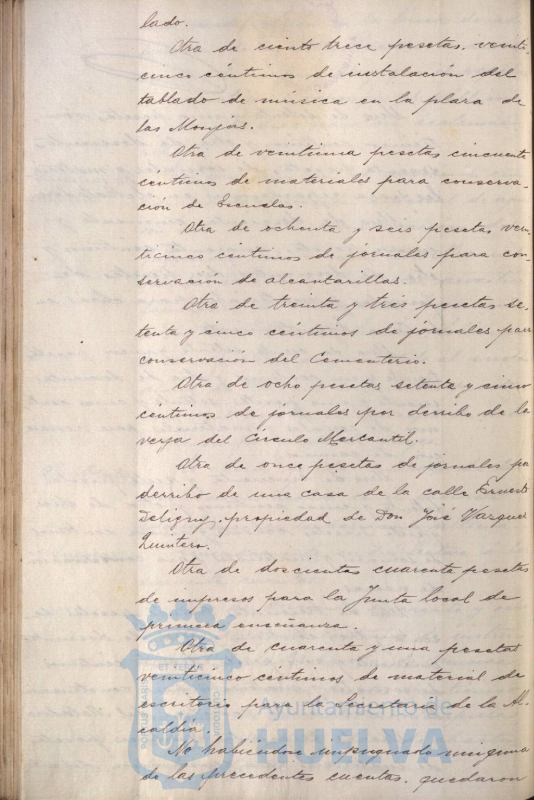 lado.
Otra de ciento trece pesetas, veinti-
cinco céntimos de instalación del
tablado de música en la plaza de
las Monjas.
Otra de veintiuna pesetas cincuenta
céntimos de materiales para conserva-
ción de Escuelas.
Otra de ochenta y seis pesetas vein-
ticinco céntimos de jornales para con-
servación de alcantarillas.
Otra de treinta y tres pesetas se-
tenta y cinco céntimos de jornales para
conservación del Cementerio.
Otra de ocho pesetas setenta y cinco
céntimos de jornales por derribo de la
verja del Círculo Mercantil.
Otra de once pesetas de jornales por
derribo de una casa de la calle Ernesto
Deligny, propiedad de Don José Vazquez
Quintero.
Otra de doscientas cuarenta pesetas
de impresos para la Junta local de
primera enseñanza.
Otra de cuarenta y una pesetas
veinticinco céntimos de material de
escritorio para la Secretaría de la Al-
caldía.
No habiéndose impugnado ninguna
de las precedentes cuentas, quedaron
Ayuntamiento de
HUELVA